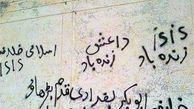 isis
زندہ باد
داعش
زندہ باد
اسلامی
ISIS
ابوبکر بغدادی قدم بڑھاؤ